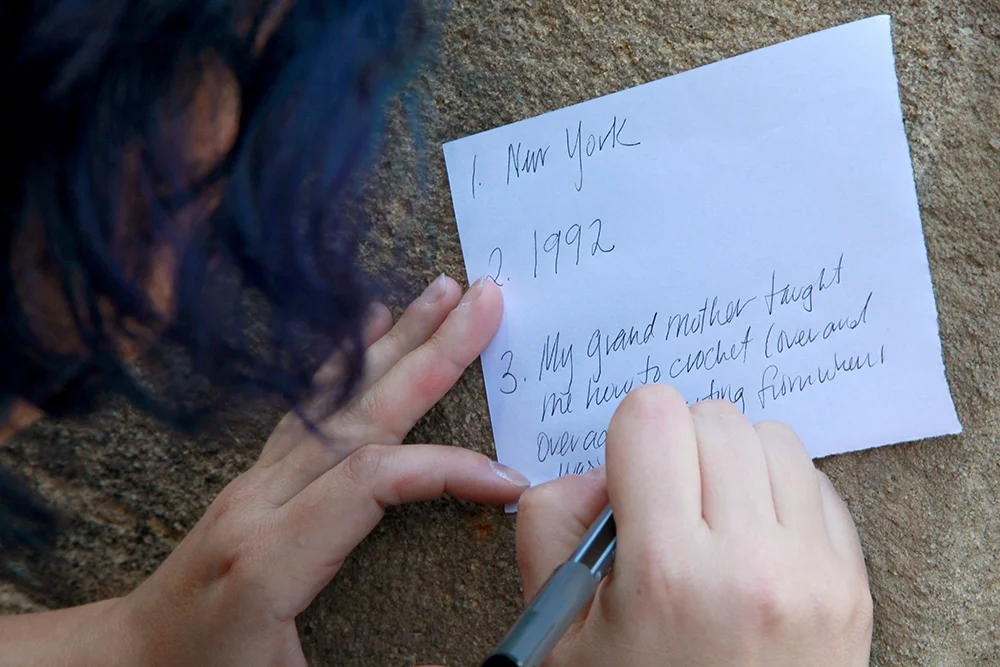 1. New York
2. 1992
3. My grand mother taught
me how to crochet (over and
over ag ting from when I